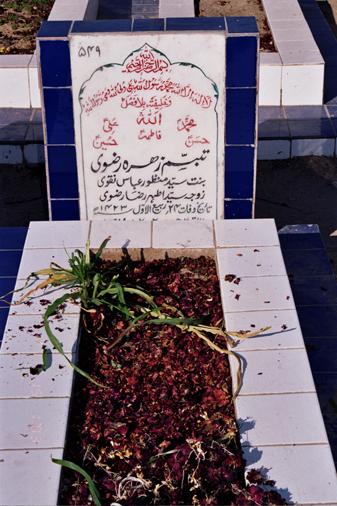 ۵۴۹
بسم اللہ الرحمن الرحیم
لا الہ الا اللہ محمد رسول اللہ علی ولی اللہ وصی رسول اللہ
وخلیفتہ بلا فصل
محمدؐ اللہ علیؑ
حسنؑ فاطمہؑ حسینؑ
زھرہ رضوی
بنت سید منظور عباس نقوی
زوجہ سید اطہر رضا رضوی
تاریخ وفات ۲۴ ربیع الاول ۱۴۲۳ھ